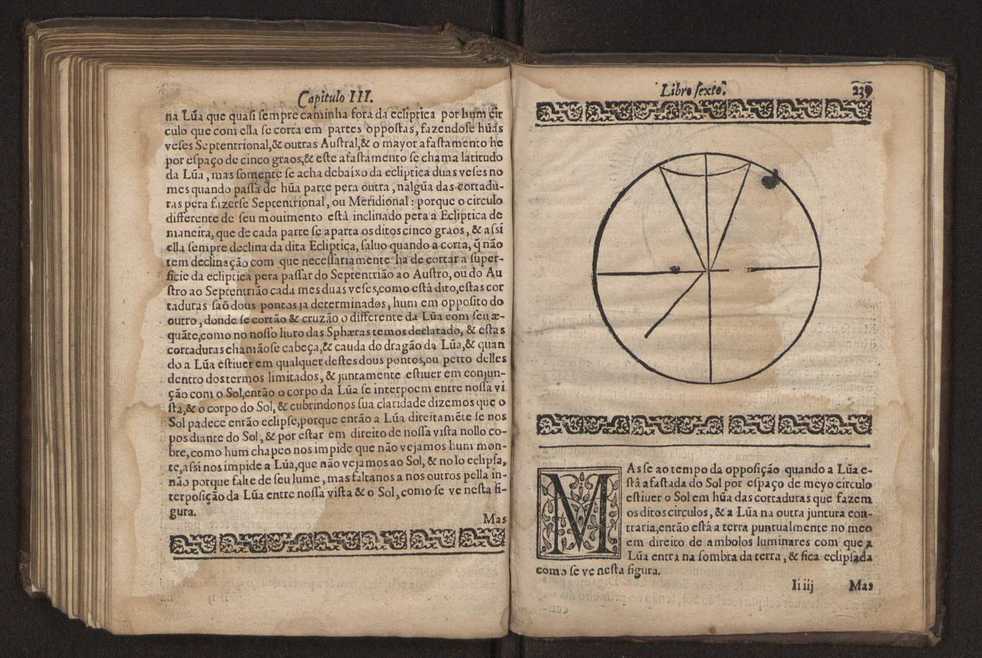 Capitulo III.
na Lũa que quasi sempre caminha fora da ecliptica por hum cir
culo que com ella se corta em partes oppostas, fazendose hũas
veses Septentrional,& outras Austral,& o mayor afastamento he
por espaço de cinco graos,& este afastamento se chama latitudo
da Lũa , mas somente se acha debaixo da ecliptica duas veses no
mes quando passa de hũa parte pera outra , nalgũa das cortadu-
ras pera fazerse Septentrional, ou Meridional : porque o circulo
differente de seu mouimento está inclinado pera a Ecliptica de
maneira, que de cada parte se aparta os ditos cinco graos , & assi
ella sempre declina da dita Ecliptica, saluo quando a corta, q̃ não
tem declinação com que necessariamente ha de cortar a super-
ficie da ecliptica pera passar do Septentrião ao Austro, ou do Au
stro ao Septentrião cada mes duas veses,como está dito,estas cor
taduras saõ dous pontos ja determinados , hum em opposito do
outro , donde se cortão & cruzão o differente da Lũa com seu æ-
quãte,como no nosso liuro das Sphæras temos declarado, & estas
cortaduras chamãose cabeça,& cauda do dragão da Lũa,& quan
do a Lũa estiuer em qualquer destes dous pontos,ou perto delles
dentro dos termos limitados , & juntamente estiuer em conjun-
ção com o Sol,então o corpo da Lũa se interpoem entre nossa vi
sta,& o corpo do Sol, & cubrindonos sua claridade dizemos que o
Sol padece então eclipse,porque então a Lũa direitamẽte se nos
pos diante do Sol , & por estar em direito de nossa vista nollo co-
bre, como hum chapeo nos impide que não vejamos hum mon-
te,assi nos impide a Lũa,que não vejamos ao Sol, & nolo eclipsa,
não porque falte de seu lume , mas faltanos a nos outros pella in-
terposição da Lũa entre nossa vista & o Sol, como se ve nesta fi-
gura.
Mas
Libro sexto.
239
MAs se ao tempo da opposição quando a Lũa e-
stá afastada do Sol por espaço de meyo circulo
estiuer o Sol em hũa das cortaduras que fazem
os ditos circulos, & a Lũa na outra juntura con-
traria,então está a terra puntualmente no meo
em direito de ambolos luminares com que a
Lũa entra na sombra da terra , & fica eclipsada
como se ve nesta figura.
Ii iij
Mas